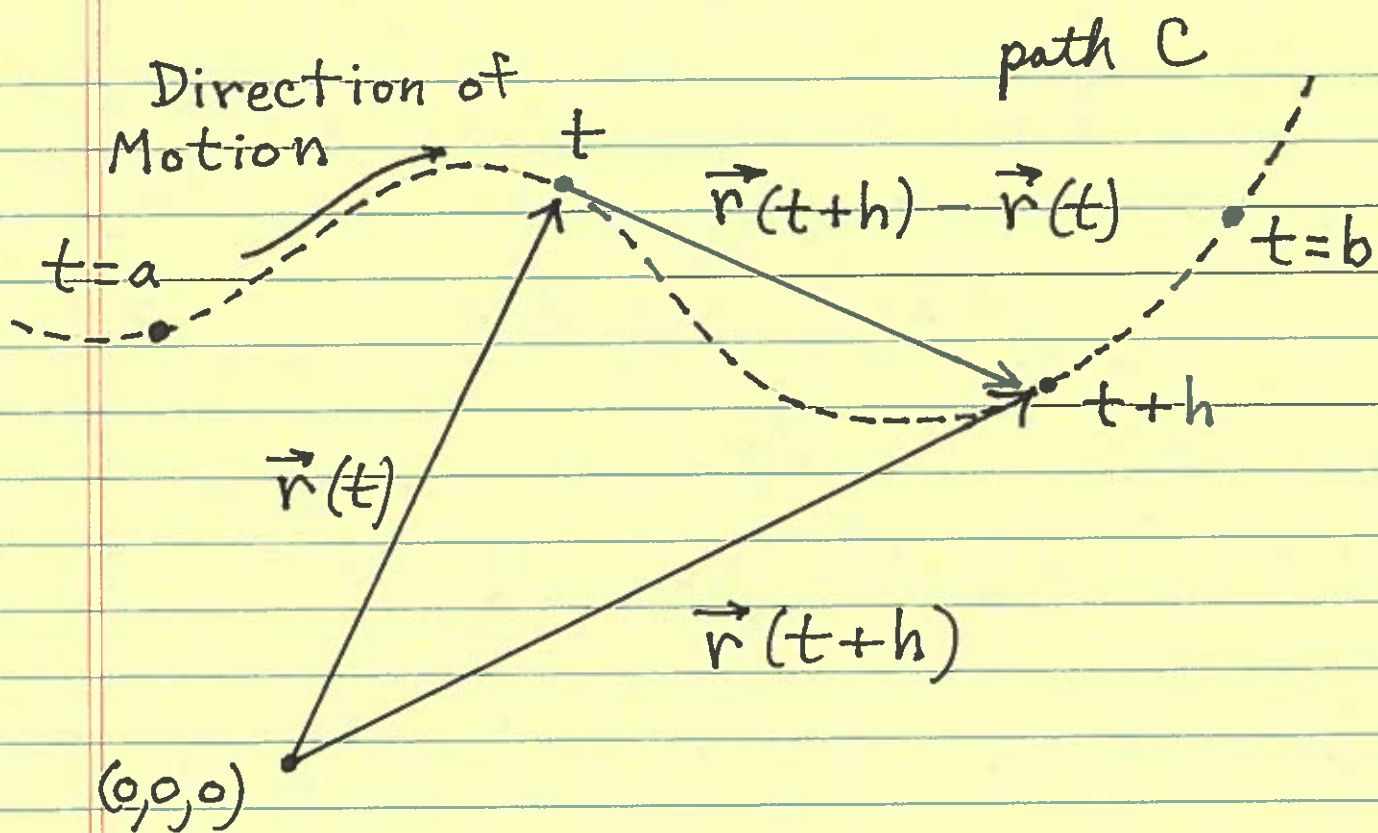 path C
Direction of
Motion
t
r⃗(t+h) − r⃗(t)
t=a
t=b
t+h
r⃗(t)
r⃗(t+h)
(0,0,0)